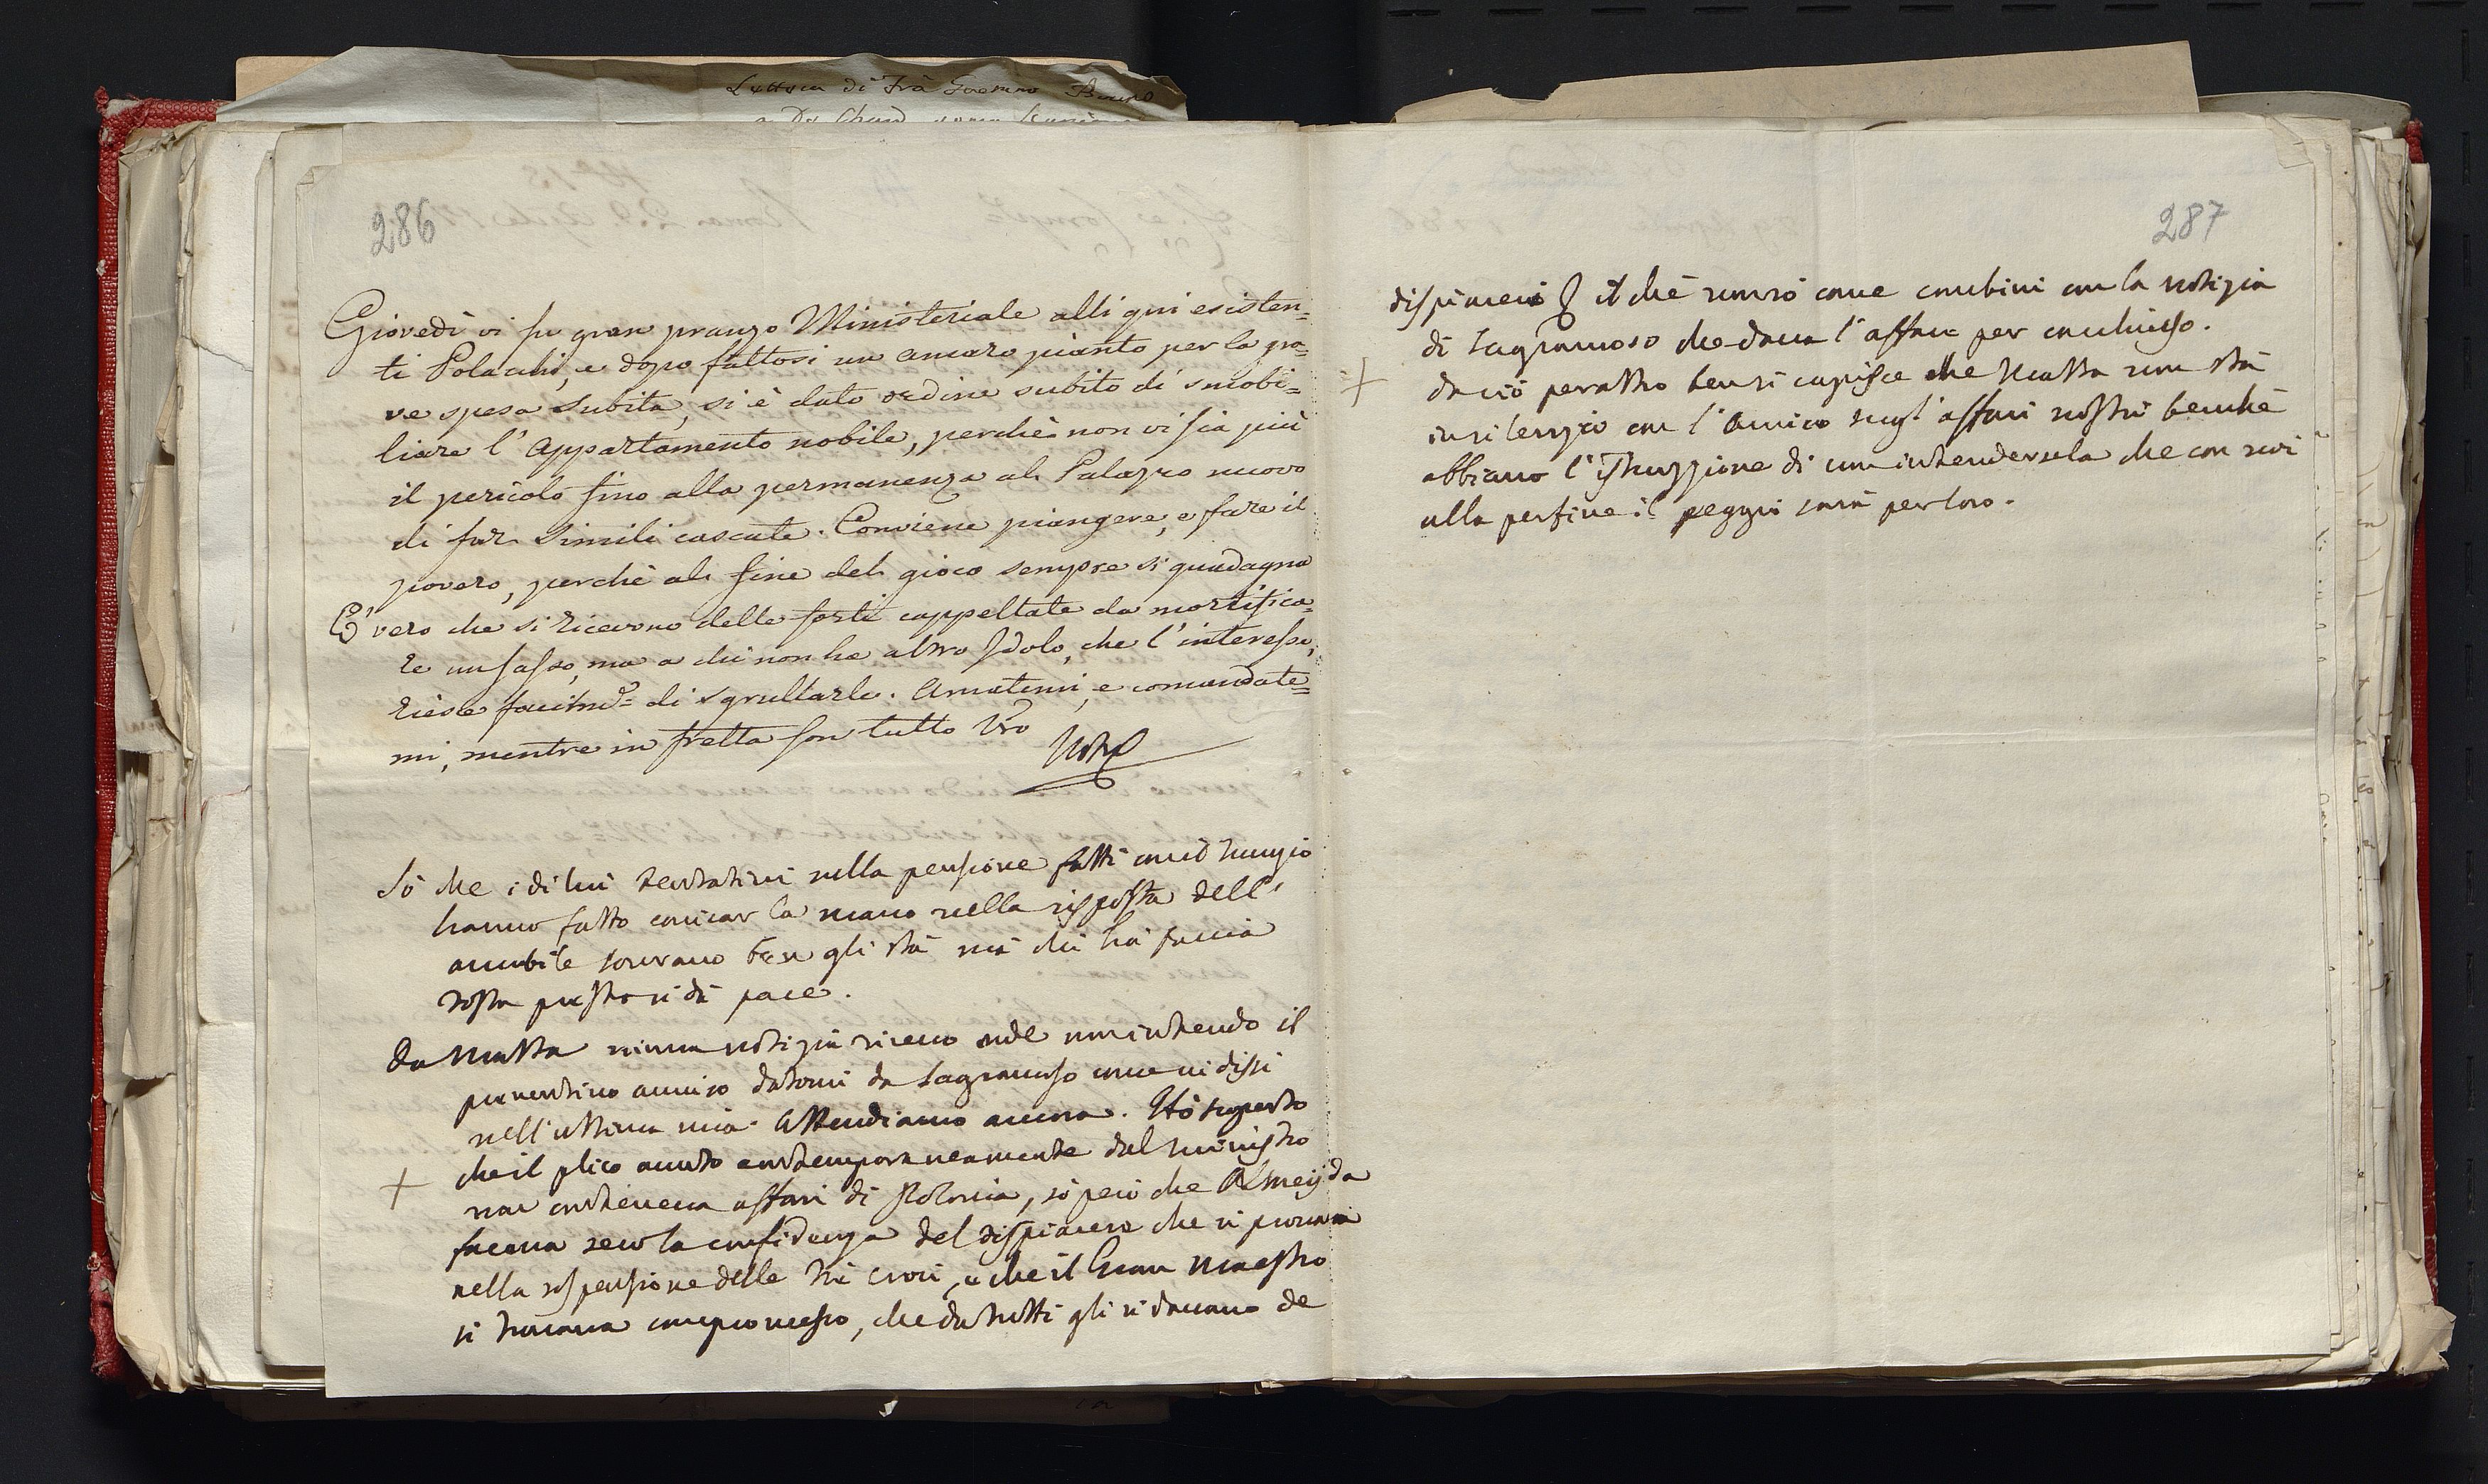 Lettera di Frà Gaetano Bruno
286
Giovedì vi fu gran pranzo Ministeriale alli qui esisten=
ti Polacchi, e dopo fattosi un amaro pianto per la gra=
ve spesa subita, si è dato ordine subito di smobi=
liare l'Appartamento nobile, perchè non vi sia più
il pericolo fino alla permanenza al Palazzo nuovo
di far simili cascate. Conviene piangere, e fare il
povero, perchè al fine del gioco sempre si guadagna
E' vero che si ricevono delle forti cappellate da mortifica=
re un sasso, ma a chi non ha altro Idolo, che l'interesse,
riesce di sgrullarle. Amatemi, e comandate=
mi, mentre in fretta son tutto Vro
Noto
Sò che i di lui tentativi sulla pensione fatti con il Nunzio
hanno fatto caricar la mano nella risposta dell'
amabile sovrano ben gli stà mà chi hà faccia
tosta presto si dà pace.
Da Malta niuna notizia ricevo onde non intendo il
preventivo avviso datomi da Sagramoso come vi dissi
nell'ultima mia. Attendiamo ancora. Hò scoperto
+ che il plico avuto contemporaneamente dal ministro
non conteneva affari di Polonia, sò però che Almeijda
faceva seco la confidenza del dispiacere che si provava
nella sospensione delle trè croci, e che il Gran Maestro
si trovava compromesso, che da tutti gli si davano de
287
dispiaceri il chè non sò come combini con la notizia
di Sagramoso che dava l'affare per conchiuso.
+ da ciò peraltro ben si capisce che Malta non stà
in silenzio con l'Amico sugl'affari nostri benchè
abbiano l'istruzzione di non intendersela che con noi
alla perfine il peggio sarà per loro.